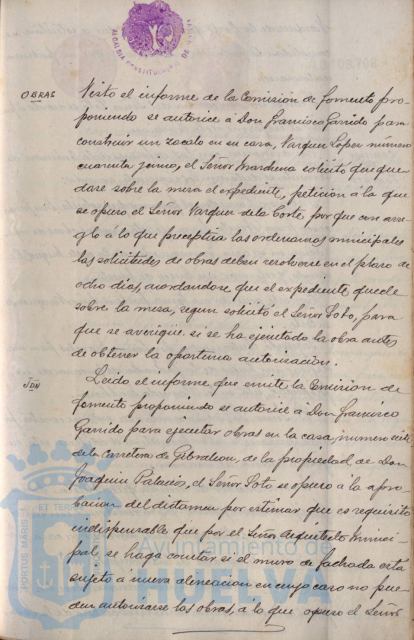 ALCALDIA CONSTITUCIONAL DE
OBRAS
Visto el informe de la Comisión de fomento pro-
poniendo se autorice á Don Francisco Garrido para
construir un zocalo en su casa, Vazquez Lopez numero
cuarenta y cinco, el Señor Marchena solicitó que que-
dase sobre la mesa el expediente, petición á la que
se opuso el Señor Vazquez de la Corte, por que con arre-
glo á lo que preceptua las ordenanzas municipales
las solicitudes de obras deben resolverse en el plazo de
ocho dias, acordandose que el expediente quede
sobre la mesa, segun solicitó el Señor Soto, para
que se averigüe si se ha ejecutado la obra antes
de obtener la oportuna autorización.
IDN
Leido el informe que emite la Comisión de
fomento proponiendo se autorice á Don Francisco
Garrido para ejecutar obras en la casa, numero siete
de la Carretera de Gibraleon, de la propiedad de Don
Joaquin Palacios, el Señor Soto se opuso á la apro-
bacion del dictamen por estimar que es requisito
indispensable que por el Señor Arquitecto Munici-
pal, se haga constar si el muro de fachada está
sujeto a nueva alineacion en cuyo caso no pue-
den autorizarse las obras, á lo que opuso el Señor
PORTUS MARIS ET TERRE
Ayuntamiento de
HUELVA